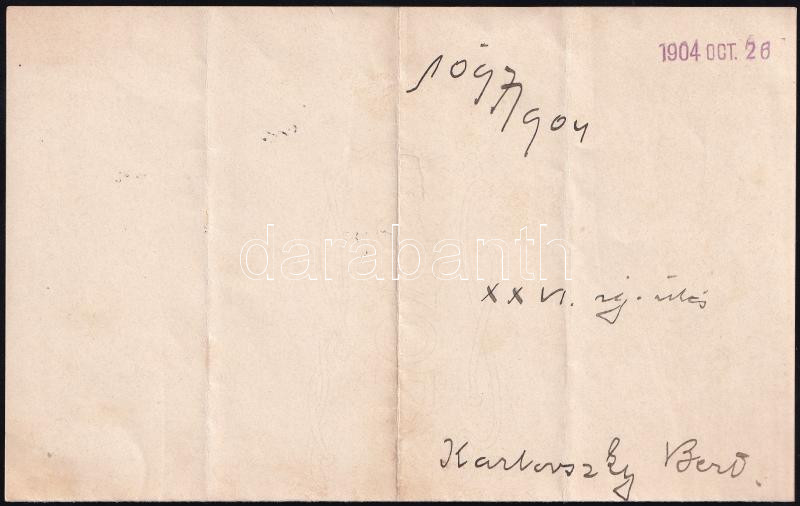 1904 OCT. 26
1097/904
darabanth
XXVI.
Karlovszky Bert.